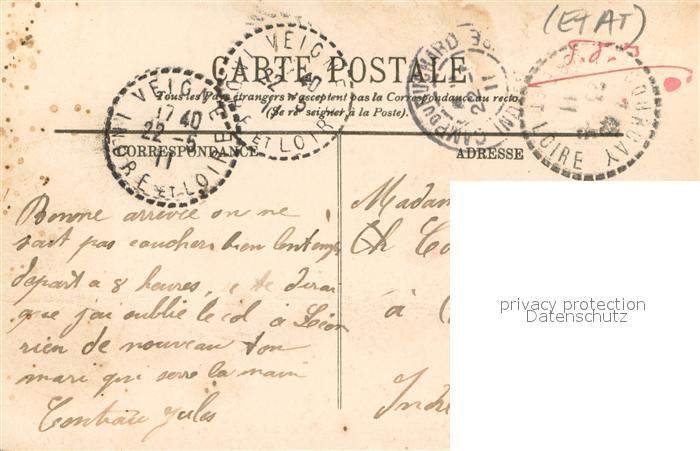 (ETAT)
CARTE POSTALE
Tous les Pays étrangers n'acceptent pas la Correspondance au recto
(Se renseigner à la Poste).
VEIGNÉ
17 40
22 - 5
11
INDRE ET LOIRE
CORRESPONDANCE
ADRESSE
Bonne arrivée on ne
sait pas coucher bien lontemps
depart a 8 heures, je te dirai
que j'ai oublié le col à Léon
rien de nouveau ton
mari qui serre la main
Jules
Madam
Ch Co
à
Indre
privacy protection
Datenschutz